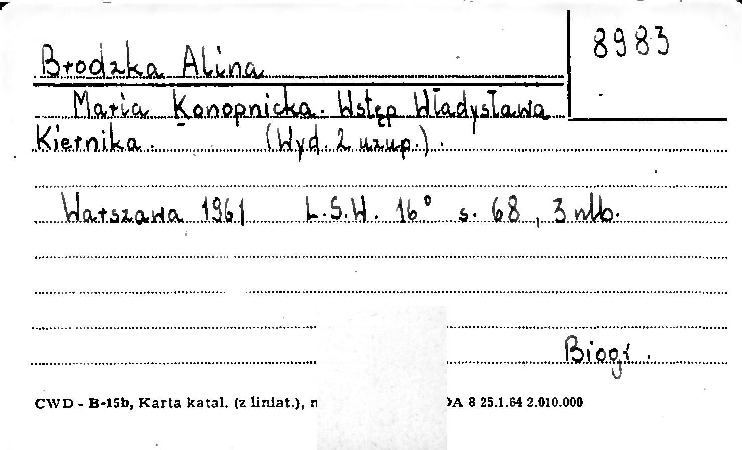 8983
Brodzka Alina
Maria Konopnicka. Wstęp Władysława
Kiernika. (Wyd. 2 uzup.).
Warszawa 1961 L.S.W. 16° s. 68, 3 nlb.
Biogr.
CWD - B-15b, Karta katal. (z liniat.), n DA 8 25.1.64 2.010.000